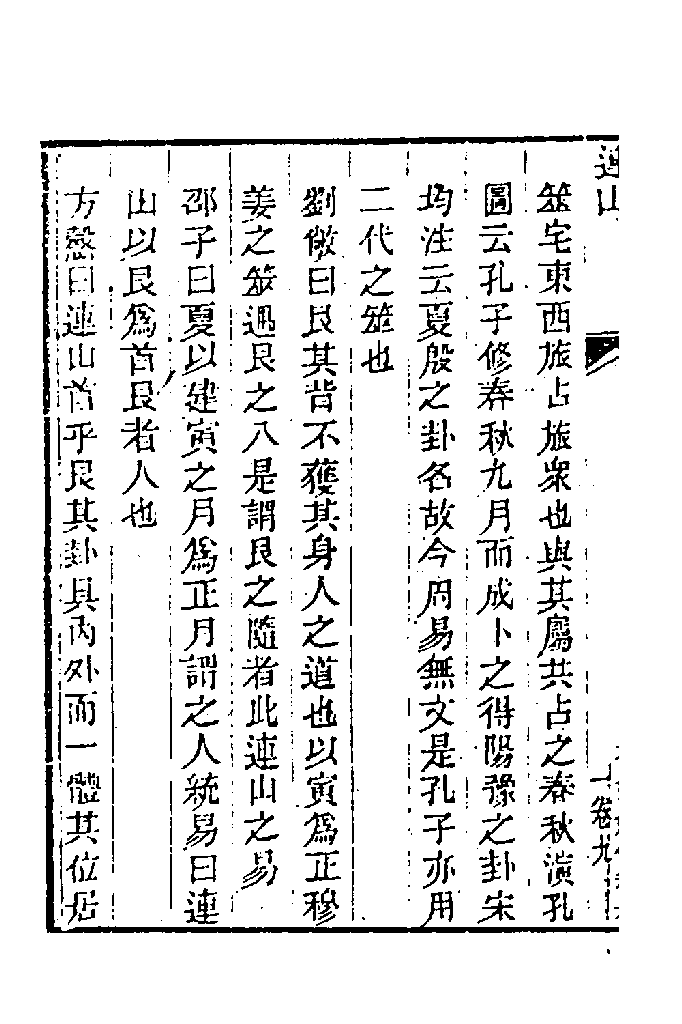 連山
卷九
筮宅東西旅占旅衆也與其屬共占之春秋演孔
圖云孔子修春秋九月而成卜之得陽豫之卦宋
均注云夏殷之卦名故今周易無文是孔子亦用
二代之筮也
劉敞曰艮其背不獲其身人之道也以寅爲正穆
姜之筮遇艮之八是謂艮之隨者此連山之易
邵子曰夏以建寅之月爲正月謂之人統易曰連
山以艮爲首艮者人也
方慤曰連山首乎艮其卦具內外而一體其位居